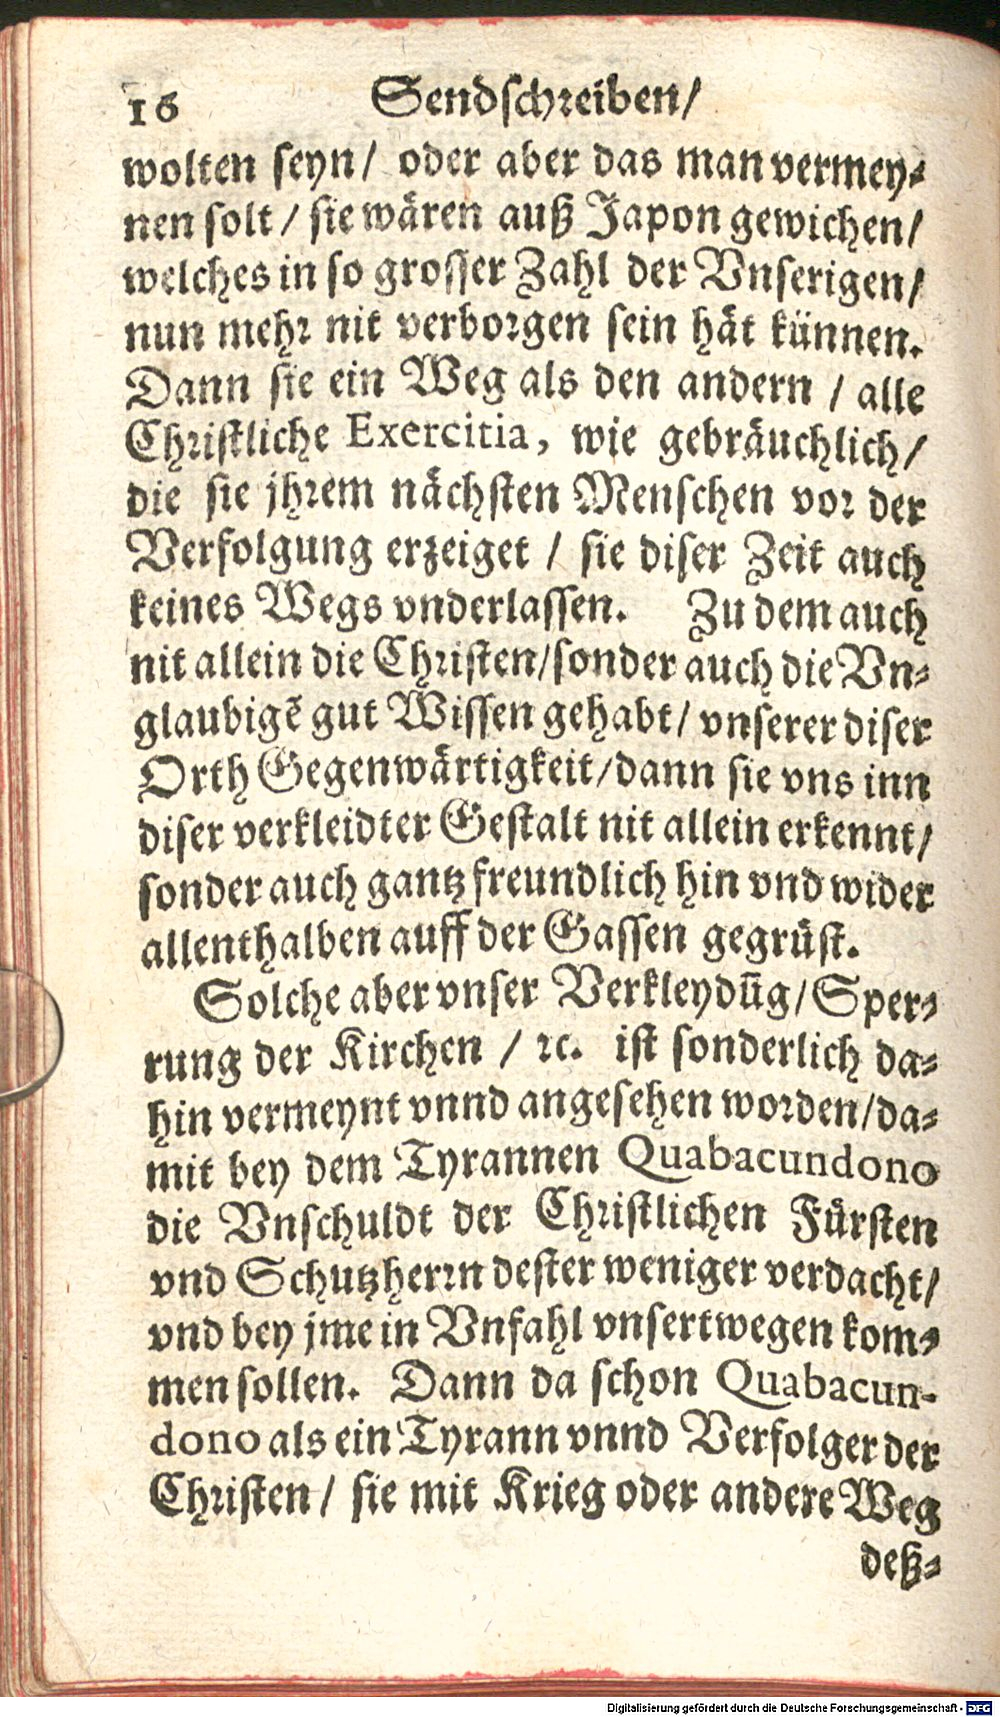 16 Sendschreiben/
wolten seyn/ oder aber das man vermey-
nen solt / sie wären auß Japon gewichen/
welches in so grosser Zahl der Vnserigen/
nun mehr nit verborgen sein hät künnen.
Dann sie ein Weg als den andern / alle
Christliche Exercitia, wie gebräuchlich/
die sie jhrem nächsten Menschen vor der
Verfolgung erzeiget / sie diser Zeit auch
keines Wegs vnderlassen. Zu dem auch
nit allein die Christen/sonder auch die Vn-
glaubigẽ gut Wissen gehabt/ vnserer diser
Orth Gegenwärtigkeit/dann sie vns inn
diser verkleidter Gestalt nit allein erkennt/
sonder auch gantz freundlich hin vnd wider
allenthalben auff der Gassen gegrüst.
Solche aber vnser Verkleydũg/Sper-
rung der Kirchen / ꝛc. ist sonderlich da-
hin vermeynt vnnd angesehen worden/da-
mit bey dem Tyrannen Quabacundono
die Vnschuldt der Christlichen Fürsten
vnd Schutzherrn dester weniger verdacht/
vnd bey jme in Vnfahl vnsertwegen kom-
men sollen. Dann da schon Quabacun-
dono als ein Tyrann vnnd Verfolger der
Christen/ sie mit Krieg oder andere Weg
deß-
Digitalisierung gefördert durch die Deutsche Forschungsgemeinschaft - DFG